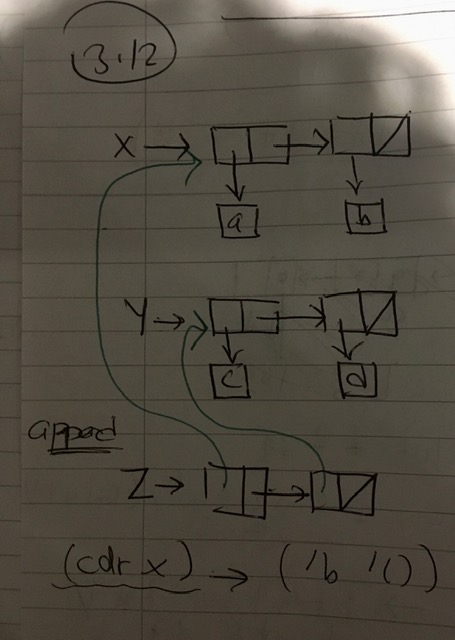 3.12
X →
a b
Y →
c d
append
Z →
(cdr x) → ('b '())